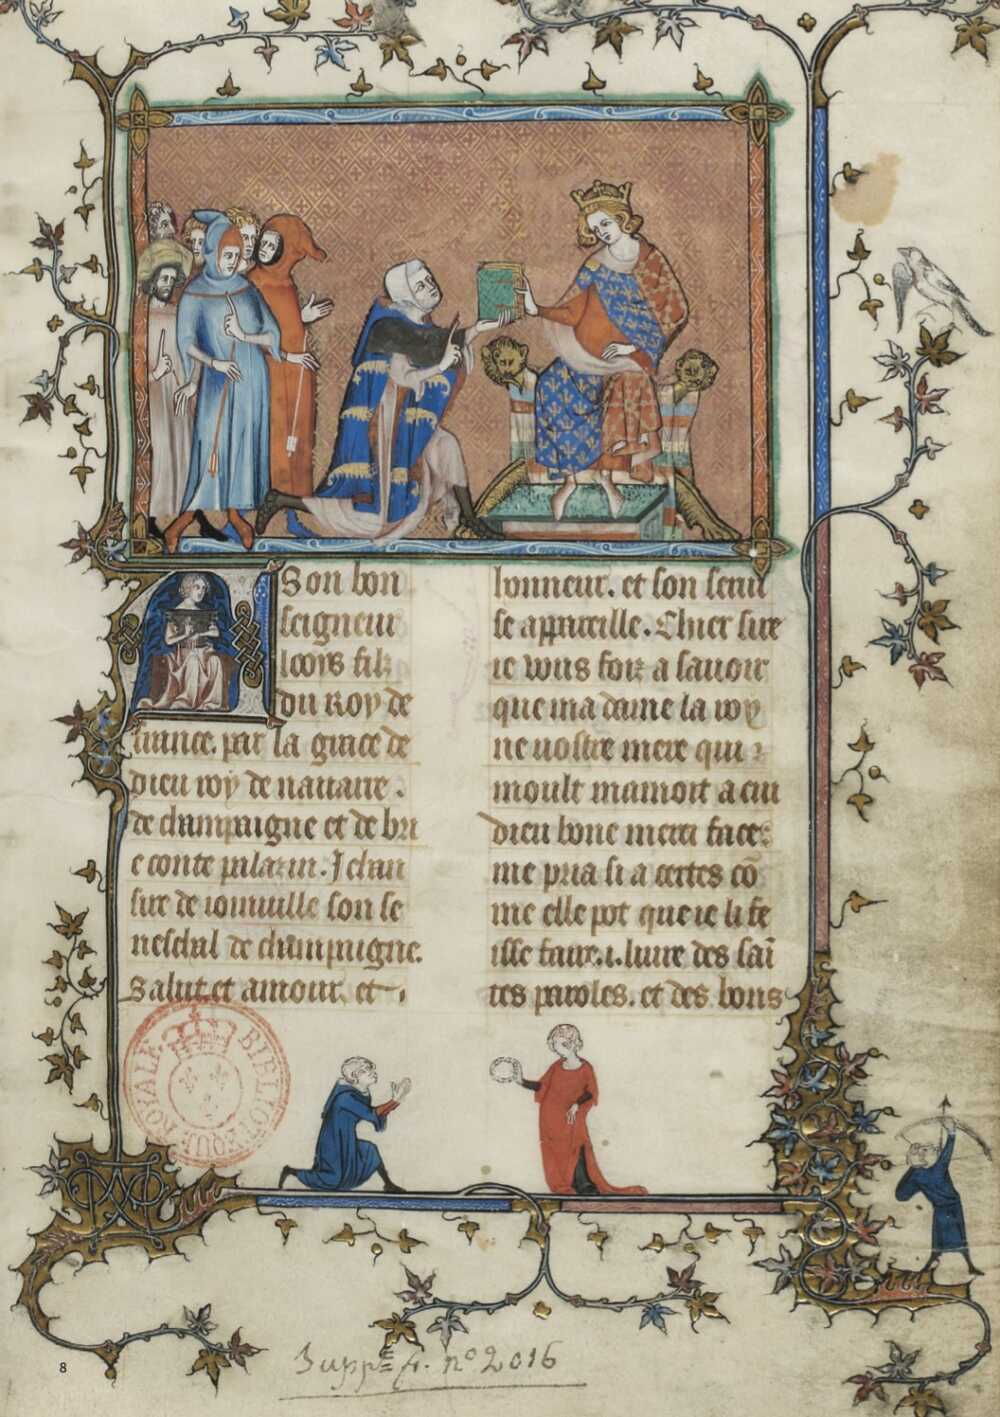 A Son bon
seigneur
looys filz
du Roy de
france. par la grace de
dieu roy de nauarre.
de champaigne et de bri
e conte palazin. Jehan
sire de ioinuille son se
neschal de champaigne.
Salut et amour et
honneur. et son seruise
se appareille. Chier sire
ie vous foiz a sauoir
que ma dame la roy
ne uostre mere qui
moult mamoit a cui
dieu bone merci face
me pria si a certes cō
me elle pot que ie li fe
isse faire .i. liure des saī
tes paroles. et des bons
BIBLIOTEQUE ROYALE
Supp.t fr. n° 2016
8